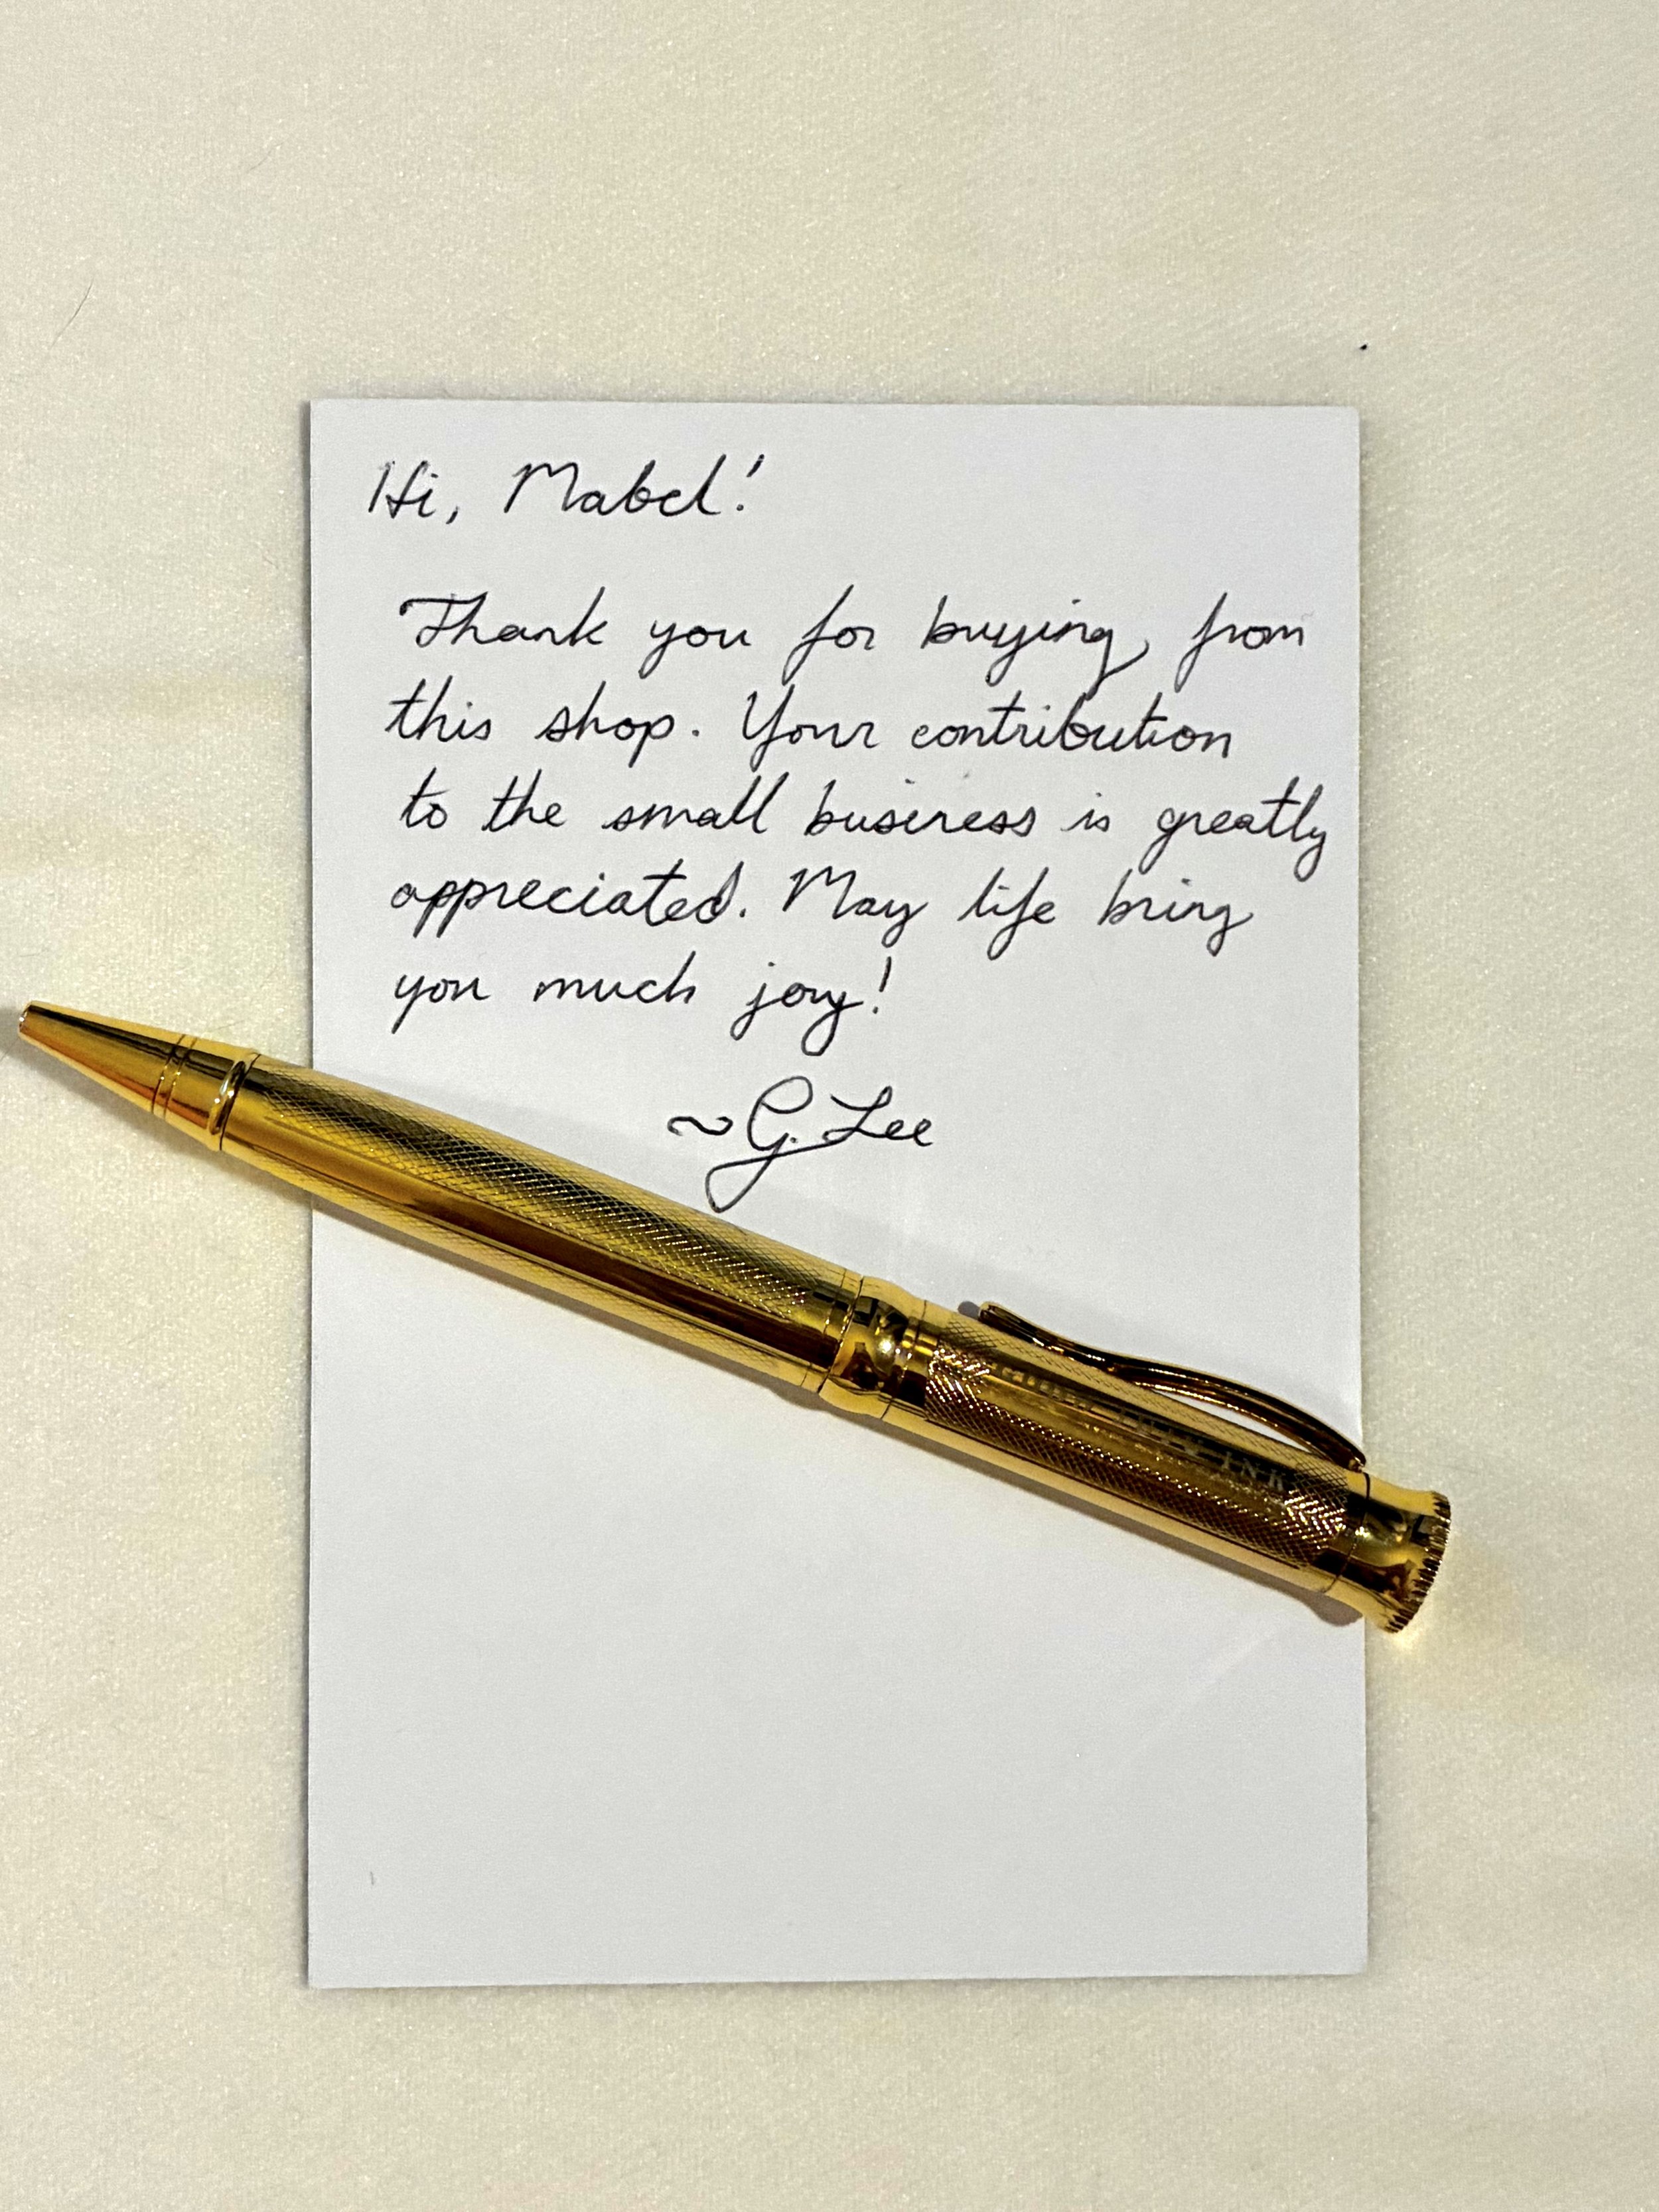 Hi, Mabel!
Thank you for buying from
this shop. Your contribution
to the small business is greatly
appreciated. May life bring
you much joy!
~G. Lee
INK